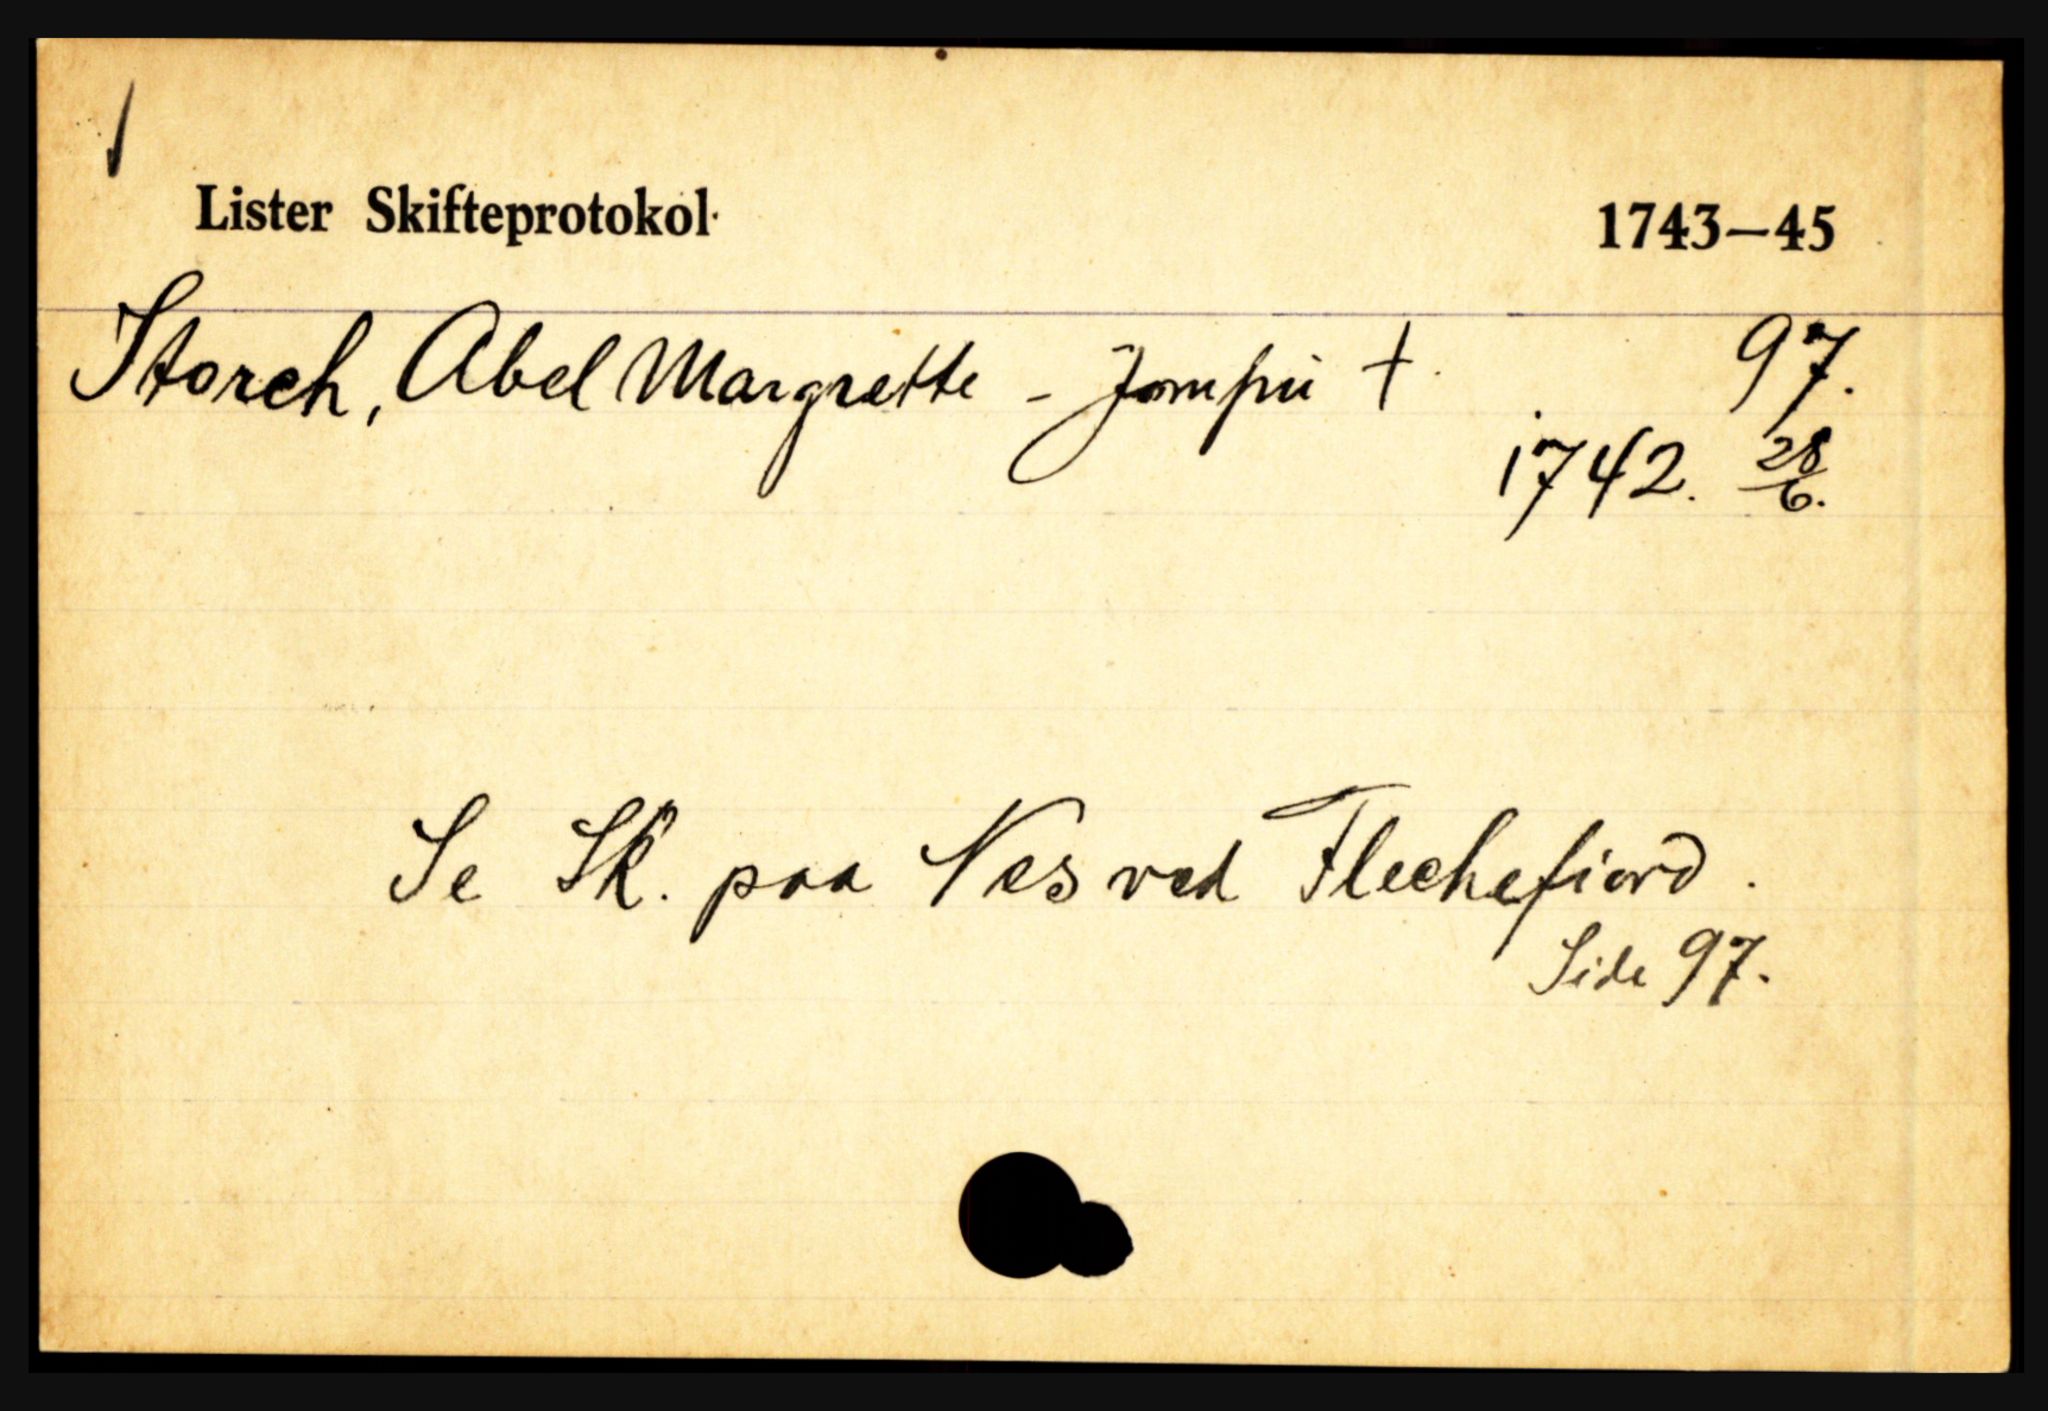 Lister Skifteprotokol 1743—45
Storch, Abel Margrette - Jomfru † 97.
1742. 28/6.
Se Sk. paa Nes ved Flechefiord.
Side 97.